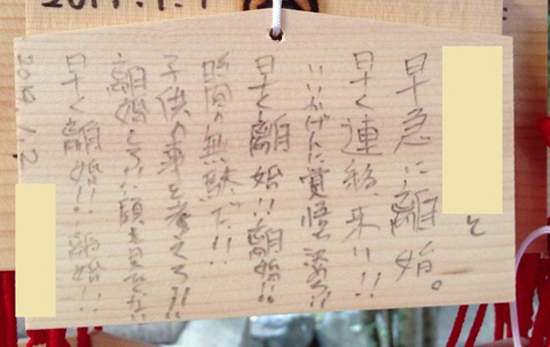 と
早急に離婚。
早く連絡、来い!!
いいかげんに覚悟を決めろ!!
早く離婚!!離婚!!
時間の無駄だ!!
子供の事を考えろ!!
離婚しろ!!顔も見たくない
早く離婚!! 離婚!!